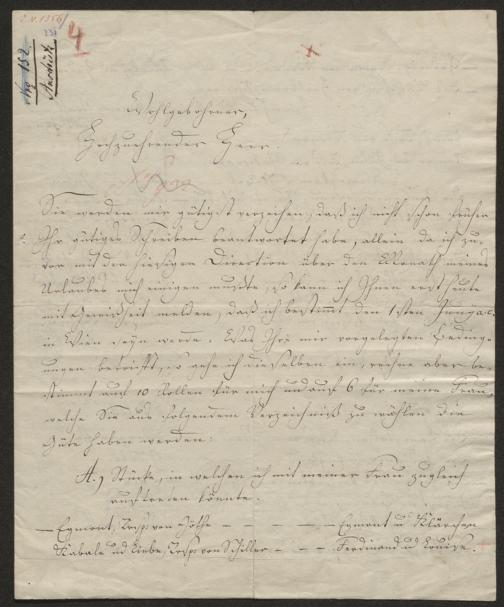 Z.N. 1356
4
No 152.
Anschütz
Wohlgebohrner,
Hochzuehrender Herr!
Sie werden mir gütigst verzeihen, daß ich nicht schon früher
Ihr gütiges Schreiben beantwortet habe, allein da ich zu-
vor mit der hiesigen Direction über den Monath meines
Urlaubes mich einigen mußte, so kann ich Ihnen erst heute
mit Gewißheit melden, daß ich bestimmt den 1sten Juny a.c.
in Wien seyn werde. Was Ihre mir vorgelegten Beding-
ungen betrifft, so gehe ich dieselben ein, rechne aber be-
stimmt auf 10 Rollen für mich und auf 6 für meine Frau,
welche Sie aus folgendem Verzeichniß zu wählen die
Güte haben werden:
A., Stücke, in welchen ich mit meiner Frau zugleich
auftreten könnte.
— Egmont, Trsp. von Göthe - - - - — Egmont u Klärchen
Kabale und Liebe, Trsp. von Schiller - - - Ferdinand u Louise.